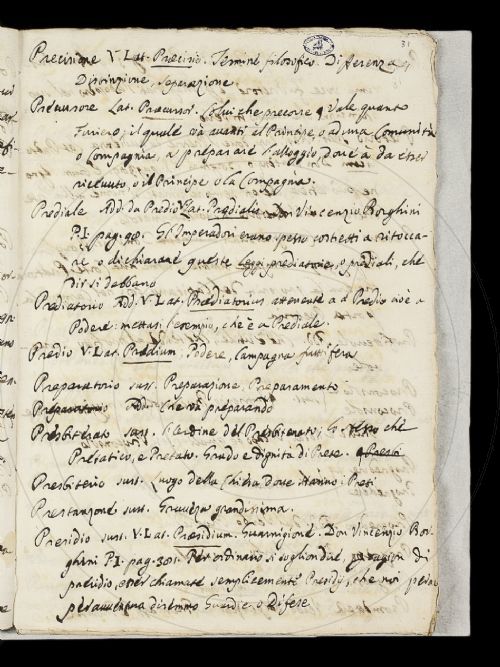 31
Precisione V. Lat. Præcisio. Termine filosofico. Differenza
Distinzione, Separazione
Precursore Lat. Præcursor. Colui che precorre, Vale quanto
Furiero, il quale và avanti al Principe, o ad una Comunità
o Compagnia, a preparare l'alloggio, dove à da esser
ricevuto, o il Principe o la Compagnia.
Prediale Add. da Predio V. Lat. Prædialis. Don Vincenzio Borghini
P.I. pag. Gl'Imperadori erano spesso costretti a ritocca-
re, o dichiarare queste leggi prediatorie, o prediali, che
dir si debbano
Prediatorio Add. V. Lat. Prædiatorius attenente a Predio cioè a
Podere: mettasi l'esempio, che è a Prediale.
Predio V. Lat. Prædium. Podere, Campagna fruttifera
Preparatorio sust. Preparazione, Preparamento
Preparatorio Add. Che và preparando
Presbiterato sust. l'Ordine del Presbiterato, lo stesso che
Pretatico, e Pretato. Grado e dignità di Prete.
Presbiterio sust. Luogo della Chiesa dove stanno i Preti
Prestanzone sust. Gravezza grandissima.
Presidio sust. V. Lat. Præsidium. Guarnigione. Don Vincenzio Bor-
ghini P.I. pag. 301. Per ordinario si soglion dire, di
presidio, esser chiamate semplicemente Presidj, che noi
per avventura diremmo Guardie, o Difese